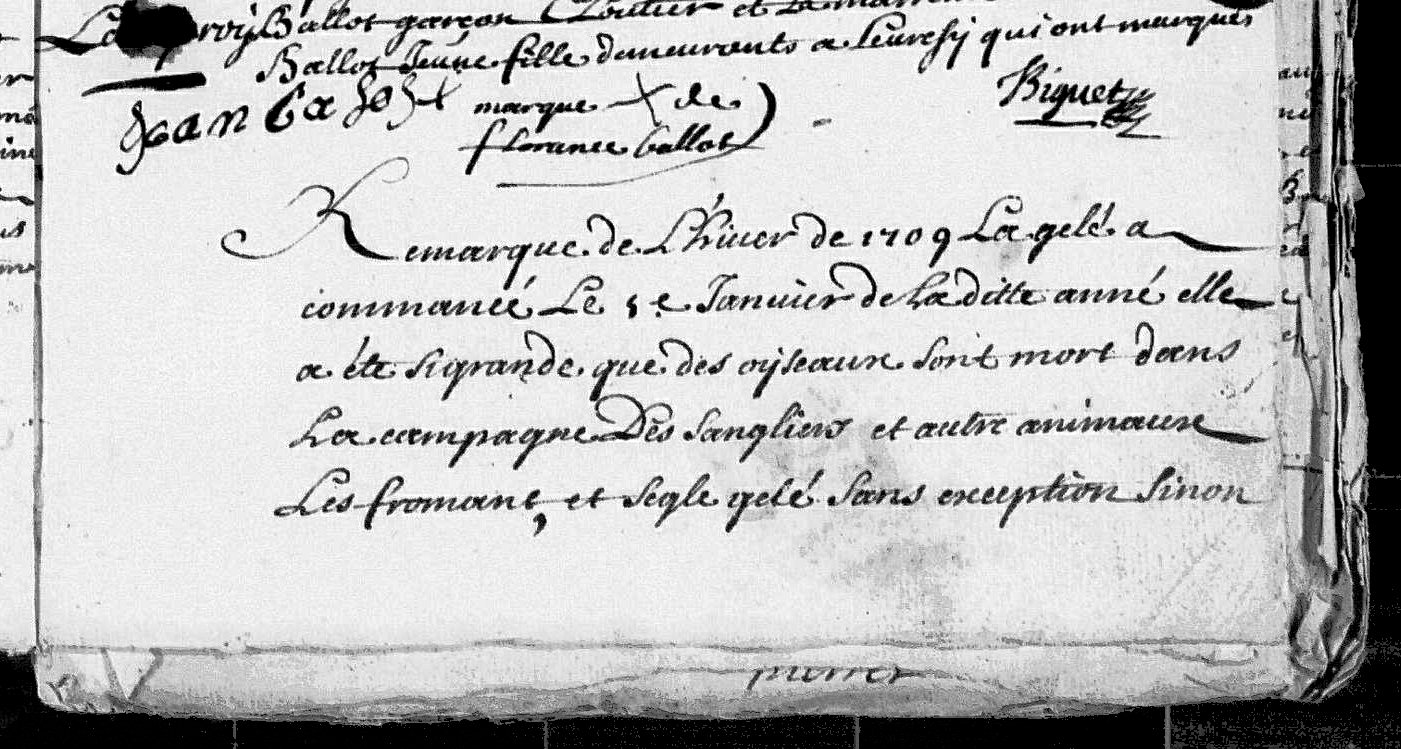 Ballot garçon Cloutier et La
Ballot Jeune fille demeurants a Leuresy qui ont marqués
Jean Ba marque X de Biguet
florance ballot
Remarque de L'hiver de 1709 La gelé a
commancé Le 5e Januier de La ditte anné elle
a éte si grande que des oyseaux sont mort dans
La campagne Des sangliers et autre animaux
Les fromant, et segle gelé sans exception sinon